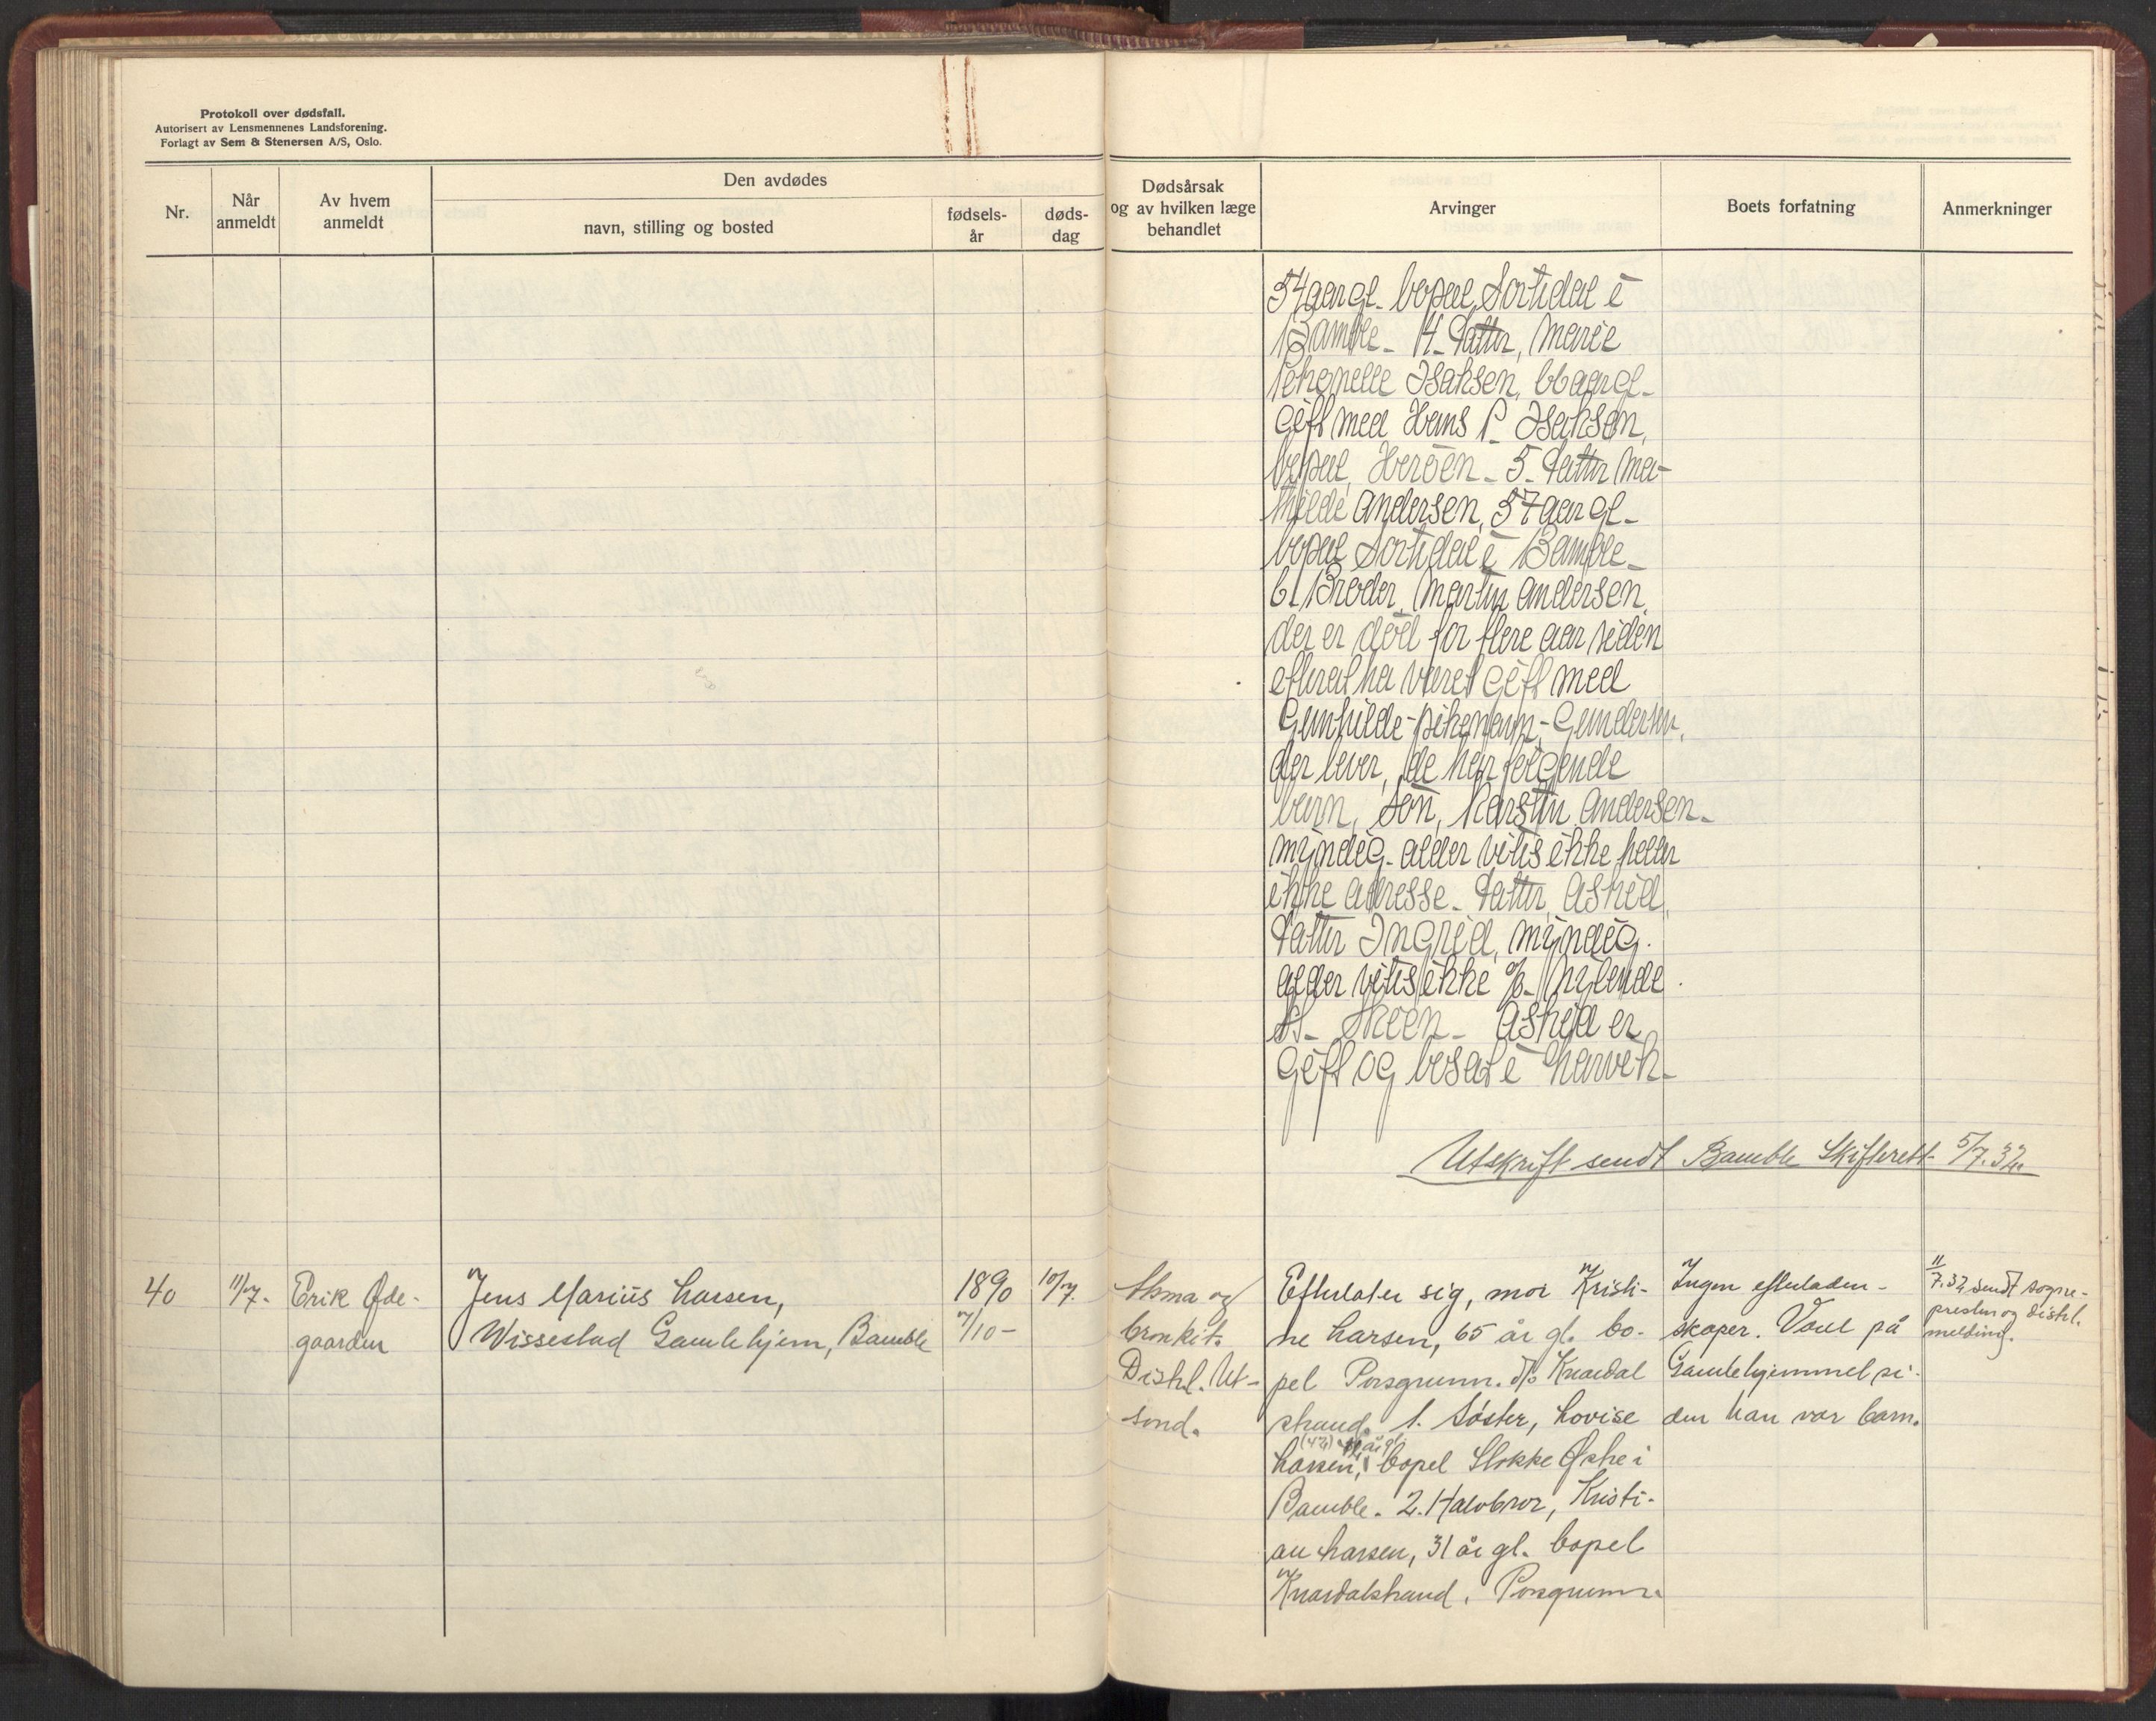 Protokoll over dødsfall.
Autorisert av Lensmennenes Landsforening.
Forlagt av Sem & Stenersen A/S, Oslo.
Nr.
Når anmeldt
Av hvem anmeldt
Den avdødes
navn, stilling og bosted
fødsels-år
døds-dag
Dødsårsak
og av hvilken læge
behandlet
Arvinger
Boets forfatning
Anmerkninger
54 aar gl. bopæl, Sortidal i
Bamble. 4. Datter, Marie
Isaksen, 66 aar gl.
gift med Hans P. Isaksen,
bopæl, Herøen. 5. Datter Ma-
thilde Andersen, 57 aar gl.
bopæl Sortidal i Bamble.
6. Broder, Martin Andersen,
der er død for flere aar siden
efter at ha været gift med
Gunhilde-pikenavn-Gundersen,
der lever, de har følgende
barn, Søn, Karstin Andersen.
myndig. alder vites ikke heller
ikke adresse. Datter, Astrid,
Datter Ingrid, myndig.
alder vites ikke %. Mylende
st. Skien. Astrid er
gift og bosat i Narvik.
Utskrift sendt Bamble Skifterett 5/7.32.
40
11/7.
Erik Øde-
gaarden
Jens Marius Larsen,
Wissestad Gamlehjem, Bamble
1890
7/10-
10/7.
Asma og
bronkit.
Distrl. Ut-
sond.
Efterlater sig, mor Kristi-
ne Larsen, 65 år gl. bo-
pel Porsgrunn. d/o Knardal
strand. 1. Søster, Lovise
(43) år gl.
Larsen, bopel Stokke Østre i
Bamble. 2. Halvbror, Kristi-
an Larsen, 31 år gl. bopel
Knardalstrand, Porsgrunn.
Ingen efterladen-
skaper. Været på
Gamlehjemmet si-
den han var barn.
11/7.32 sendt sogne-
presten og distrl.
melding.